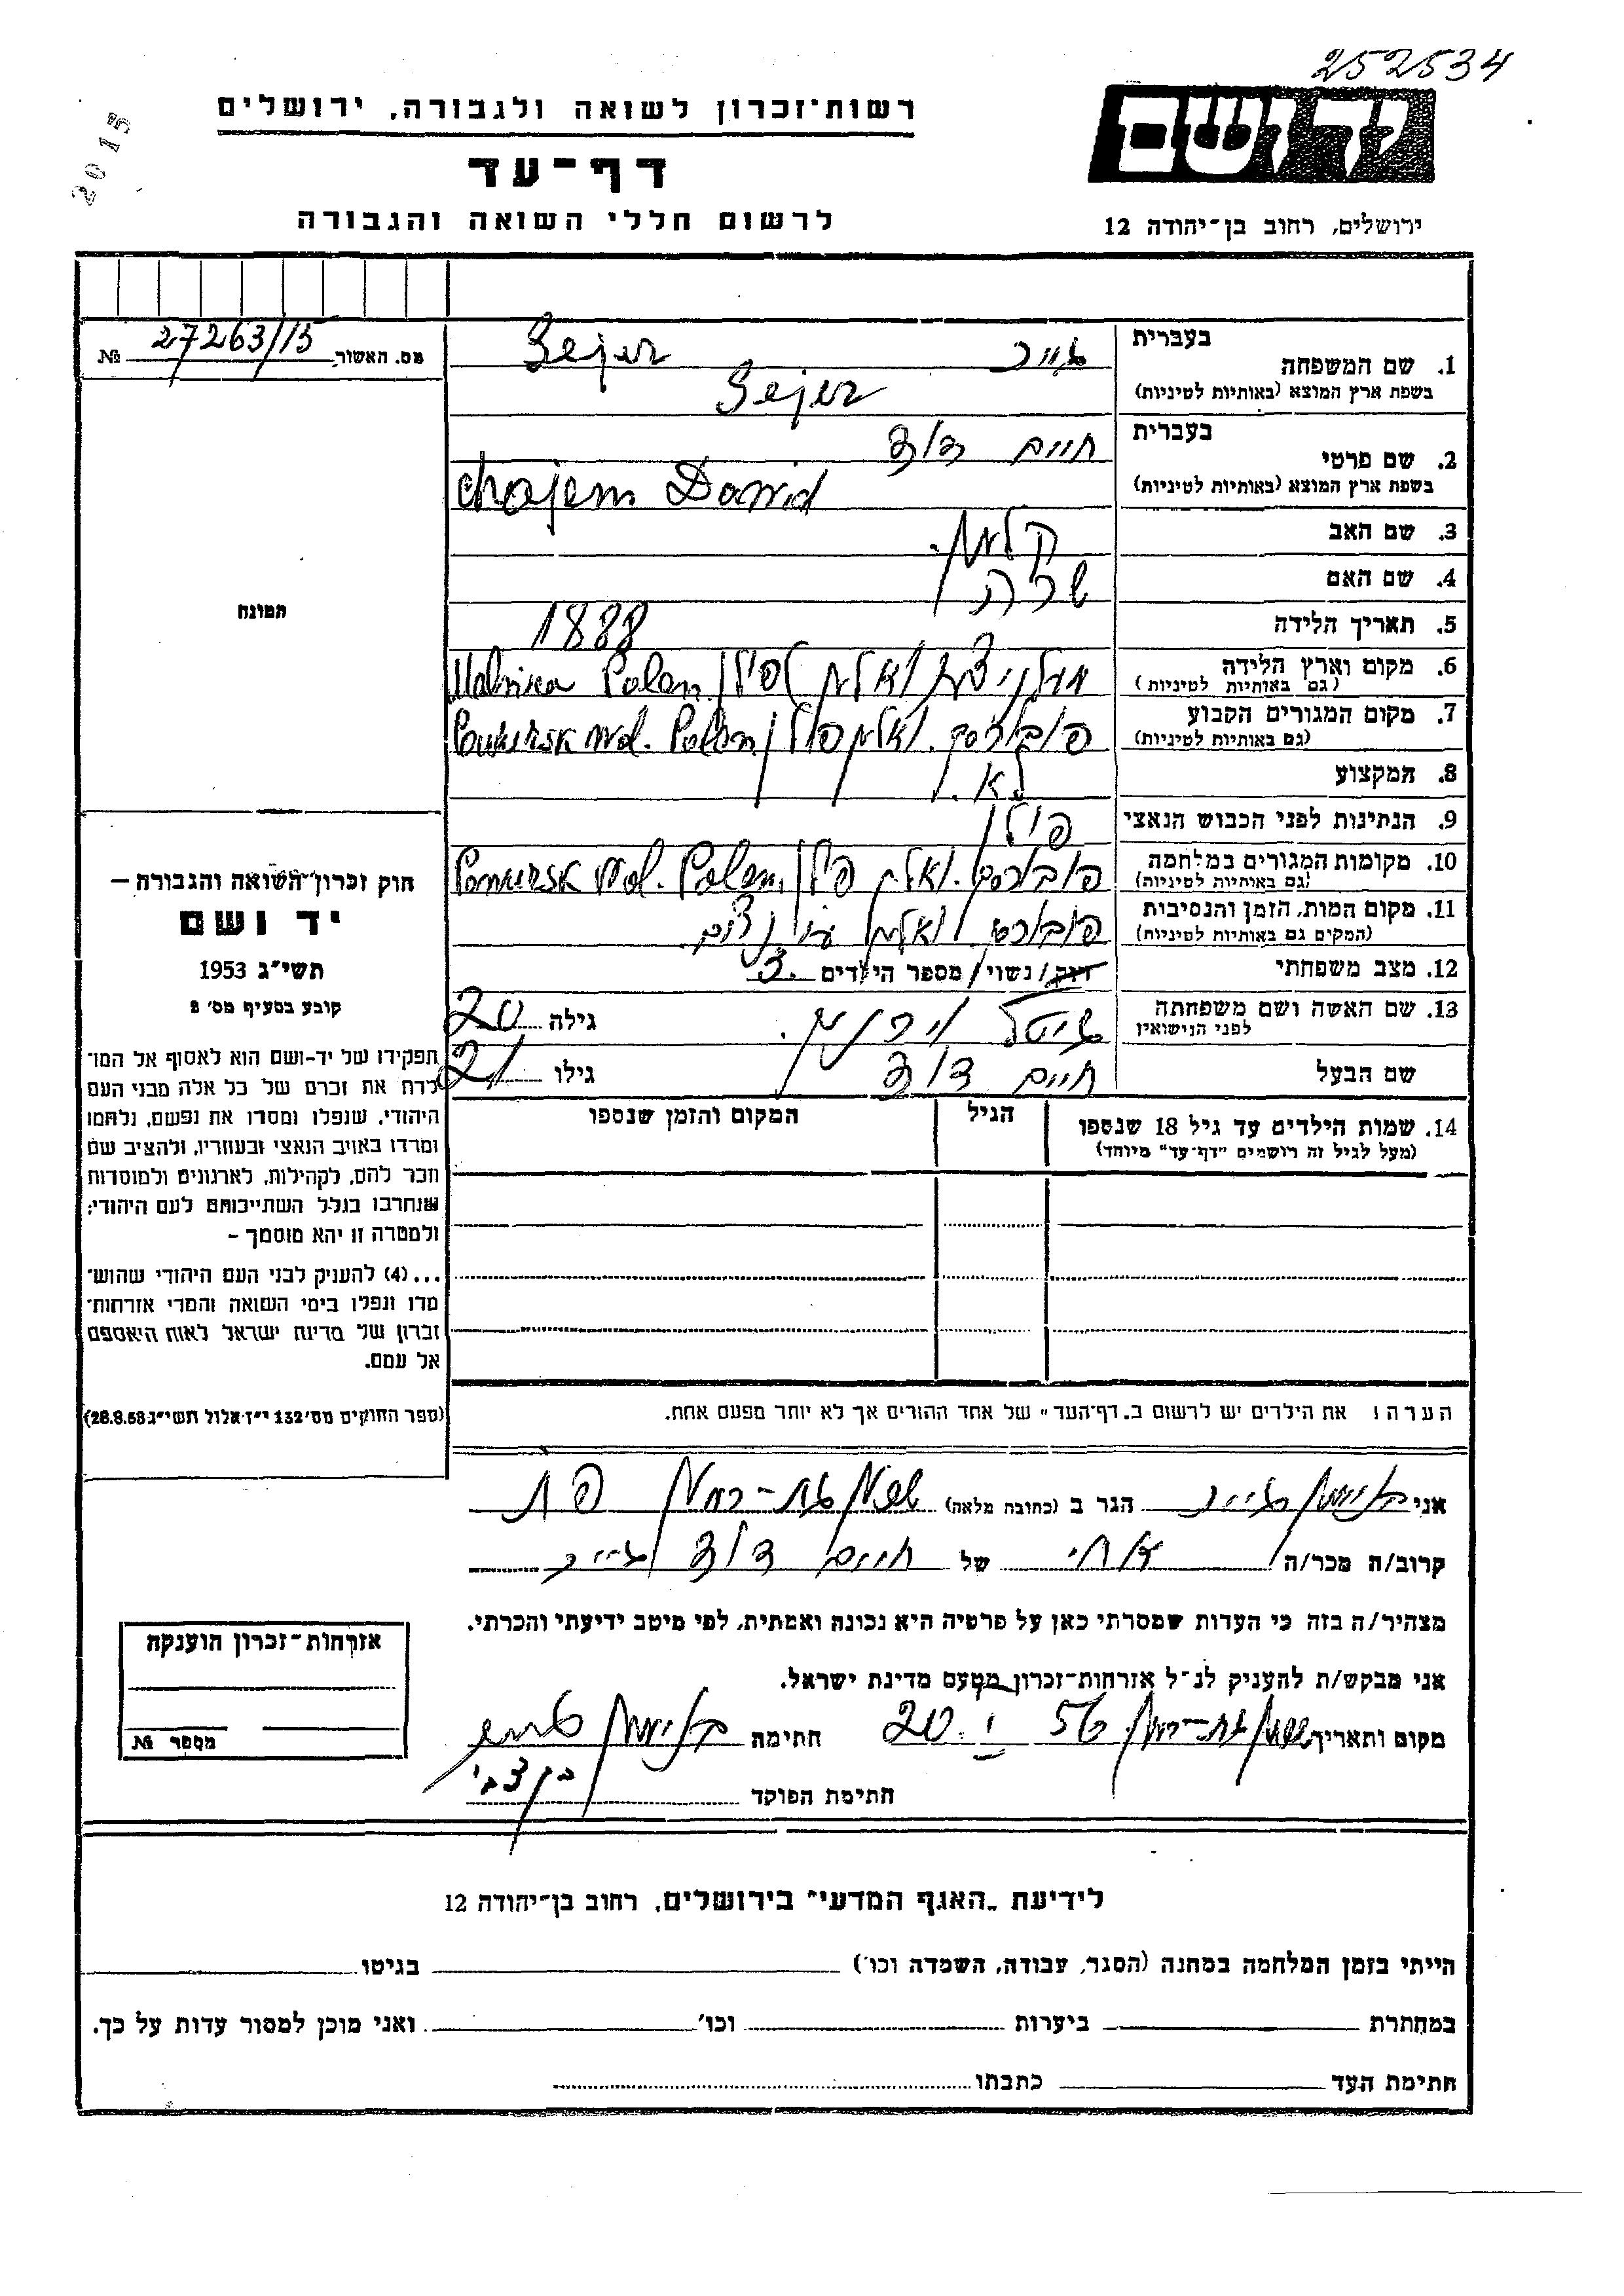 252534
2015
יד ושם
רשות־זכרון לשואה ולגבורה, ירושלים
דף־עד
לרשום חללי השואה והגבורה
ירושלים, רחוב בן־יהודה 12
מס. האשור № 27263/15
בעברית
1. שם המשפחה זייר Sejer
בשפת ארץ המוצא (באותיות לטיניות) Sejer
בעברית
2. שם פרטי חיים דוד
בשפת ארץ המוצא (באותיות לטיניות) Chajem Dawid
3. שם האב קלמן
4. שם האם שרה
5. תאריך הלידה 1888
6. מקום וארץ הלידה פולין Polen
(גם באותיות לטיניות)
7. מקום המגורים הקבוע Powursk Wol. Polen
(גם באותיות לטיניות)
8. המקצוע
9. הנתינות לפני הכבוש הנאצי פולין
10. מקומות המגורים במלחמה Powursk Wol. Polen
(גם באותיות לטיניות)
11. מקום המות, הזמן והנסיבות
(המקום גם באותיות לטיניות)
12. מצב משפחתי רווק/נשוי/ מספר הילדים 3
13. שם האשה ושם משפחתה גילה 20
לפני הנישואין
שם הבעל חיים דוד גילו 21
14. שמות הילדים עד גיל 18 שנספו הגיל המקום והזמן שנספו
(מעל לגיל זה רושמים "דף־עד" מיוחד)
התמונה
חוק זכרון־השואה והגבורה —
יד ושם
תשי״ג 1953
קובע בסעיף מס׳ 2
תפקידו של יד-ושם הוא לאסוף אל המו־
לדת את זכרם של כל אלה מבני העם
היהודי, שנפלו ומסרו את נפשם, נלחמו
ומרדו באויב הנאצי ובעוזריו, ולהציב שם
וזכר להם, לקהילות, לארגונים ולמוסדות
שנחרבו בגלל השתייכותם לעם היהודי;
ולמטרה זו יהא מוסמך –
...(4) להעניק לבני העם היהודי שהוש־
מדו ונפלו בימי השואה והמרי אזרחות־
זכרון של מדינת ישראל לאות היאספם
אל עמם.
(ספר החוקים מס׳ 132 י״ז אלול תשי״ג 28.8.53)
הערה: את הילדים יש לרשום ב„דף־העד" של אחד ההורים אך לא יותר מפעם אחת.
אני בנימין זייר הגר ב (כתובת מלאה) רמת־גן
קרוב/ה מכר/ה אחי של חיים דוד זייר
מצהיר/ה בזה כי העדות שמסרתי כאן על פרטיה היא נכונה ואמתית, לפי מיטב ידיעתי והכרתי.
אני מבקש/ת להעניק לנ״ל אזרחות־זכרון מטעם מדינת ישראל.
מקום ותאריך 20.I 56 חתימה בנימין
חתימת הפוקד בן צבי
אזרחות־זכרון הוענקה
מספר №
לידיעת „האגף המדעי" בירושלים, רחוב בן־יהודה 12
הייתי בזמן המלחמה במחנה (הסגר, עבודה, השמדה וכו׳) בגיטו
במחתרת ביערות וכו׳ ואני מוכן למסור עדות על כך.
חתימת העד כתבתו